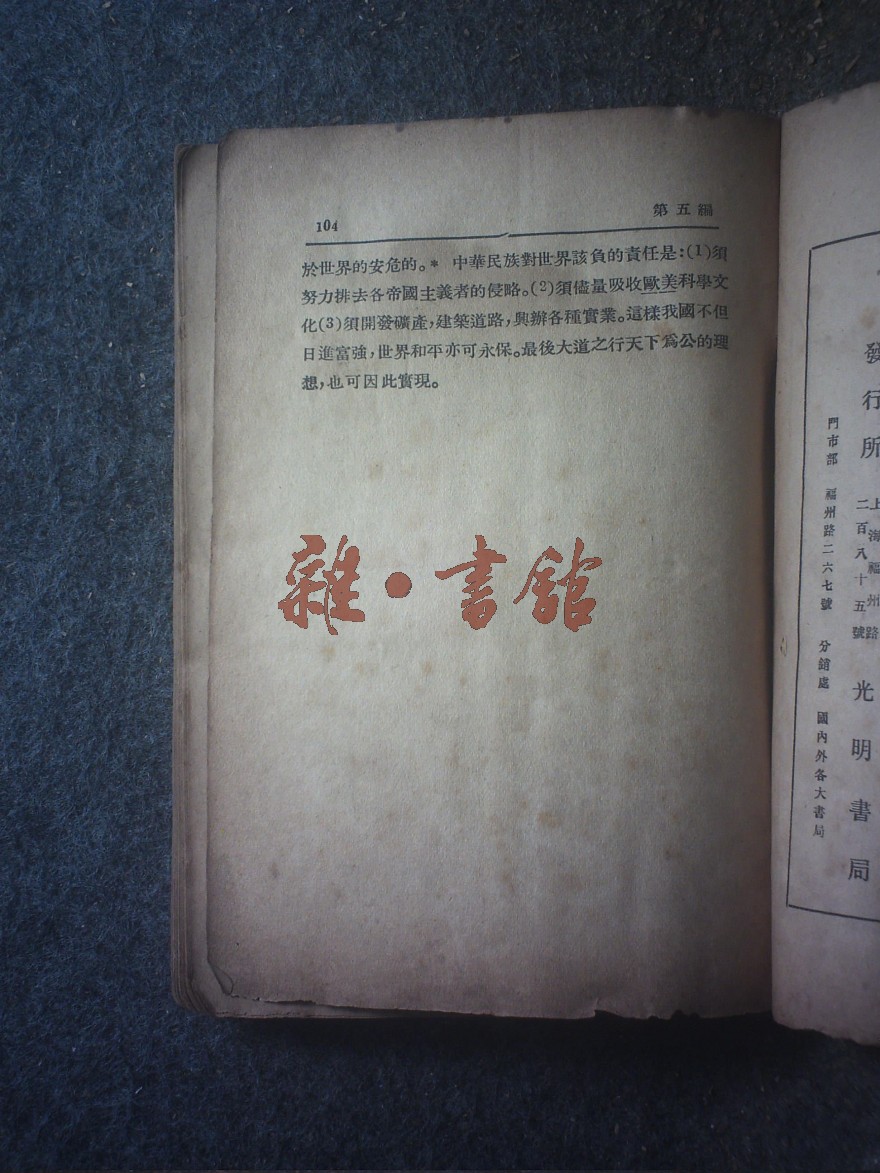 104
第五編
於世界的安危的。* 中華民族對世界該負的責任是:(1)須
努力排去各帝國主義者的侵略。(2)須儘量吸收歐美科學文
化(3)須開發礦產,建築道路,興辦各種實業。這樣我國不但
日進富強,世界和平亦可永保。最後大道之行天下爲公的理
想,也可因此實現。
雜·書館
發行所
上海福州路
二百八十五號
光明書局
門市部 福州路二六七號 分銷處 國內外各大書局